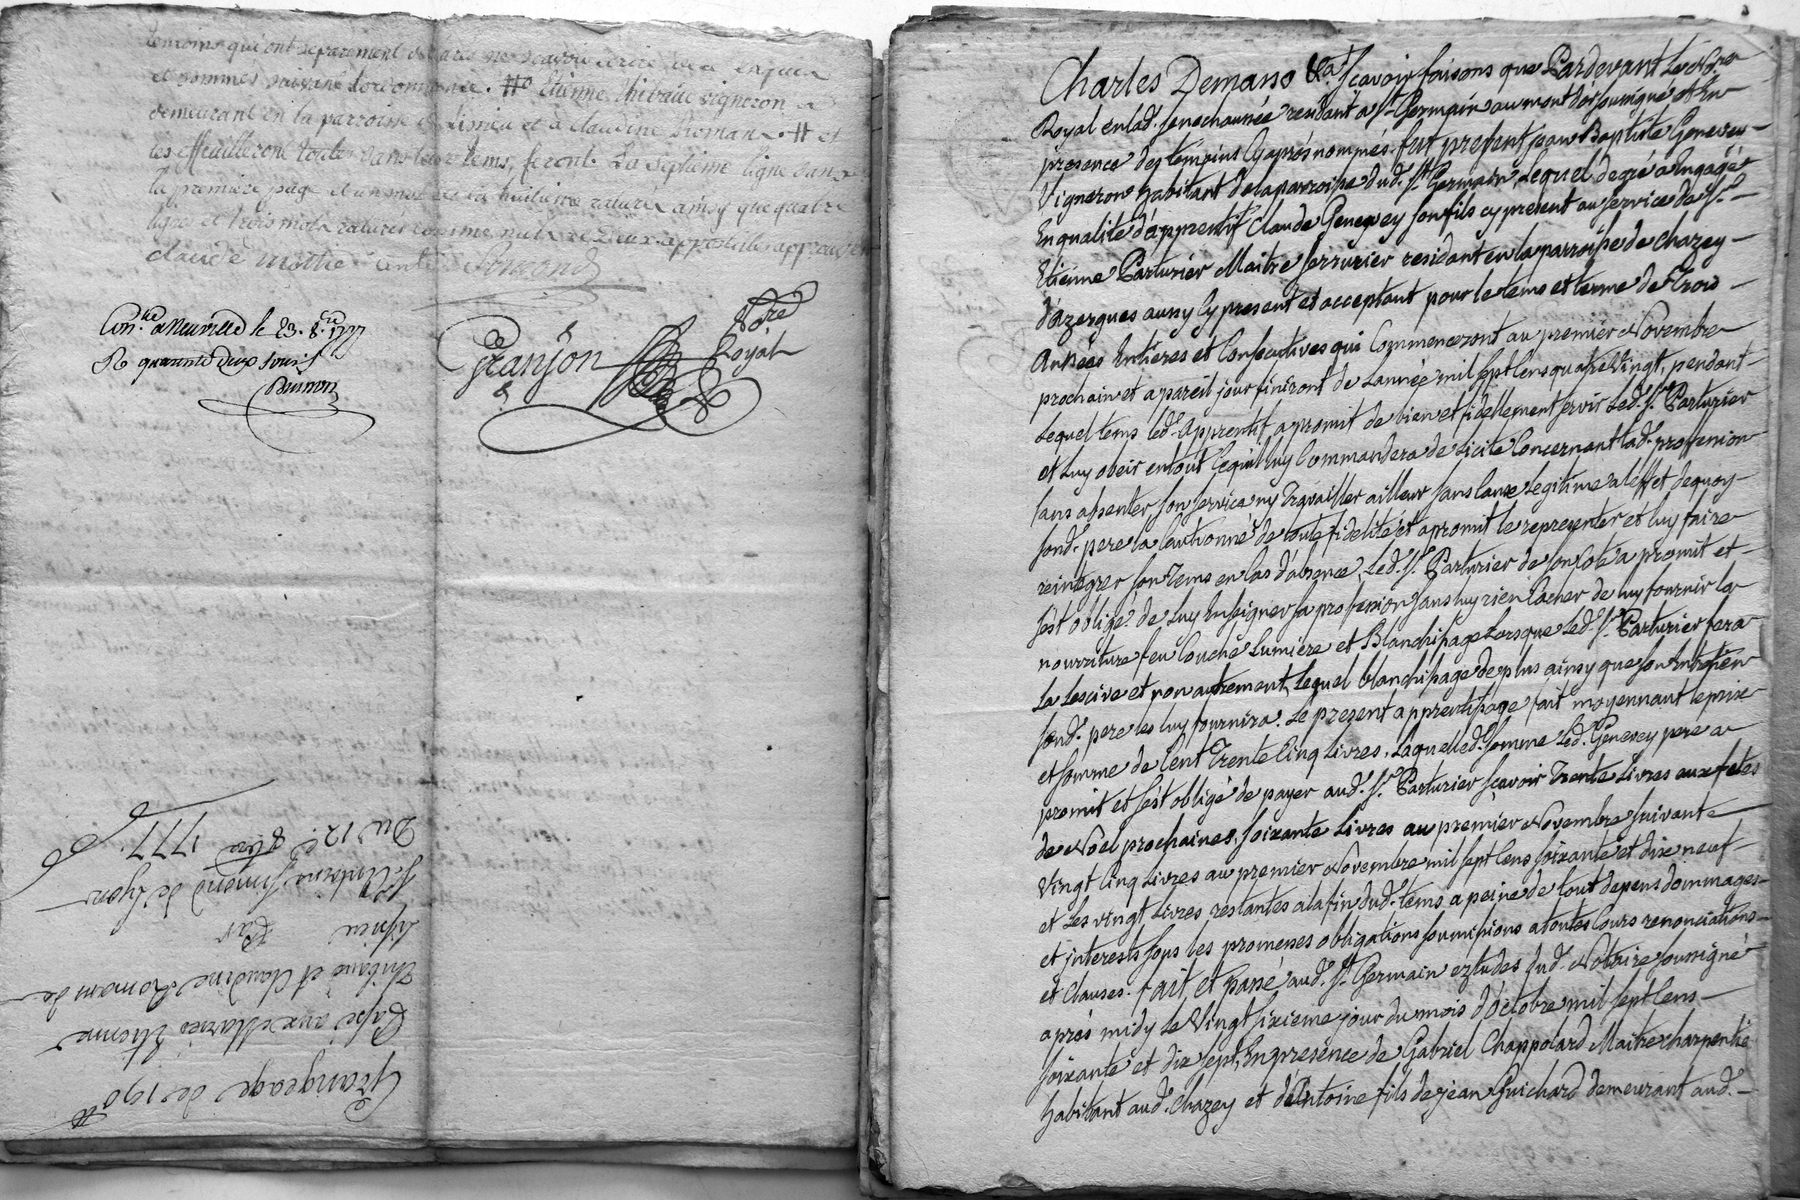 temoins qui ont separement declaré ne scavoir ecrire de ce enquis
et sommés suivant l'ordonnance. # Etienne Thibaud vigneron
demeurant en la parroisse de Lissieu et a Claudine Romans # et
les effeuilleront toutes dans leur tems, feront. La septieme ligne dans
la premiere page et un mot de la huitieme raturés ainsy que quatre
lignes et trois mots raturés comme nuls et deux apostilles approuvés
claude mottre Simond
Con.lé a Neuville le 23. 8.bre 1777
R. quarante deux sous
Granjon Nore
Royal
Grangeage de 190#
Passé aux Mariés Etienne
Thibaud et Claudine Romans de
Lissieu Par
S. Antoine Simond de Lyon
Du 12e 8bre 1777.
Charles Demans &a. Scavoir faisons que Pardevant Le Nore
Royal en lad. senechaussée residant a St. Germain au mont d'or soussigné et En
presence des temoins Cy après nommés. fut present jean Baptiste Genevey –
Vigneron habitant de la parroisse dud. St. Germain, Lequel de gré a Engagé
En qualité d'apprentif Claude Genevey son fils cy present au service de Sr. –
Etienne Parturier Maitre serrurier residant en la parroisse de chazey –
d'azergues aussy Cy present et acceptant pour le tems et terme de Trois –
Années Entieres et Consecutives qui Commenceront au premier Novembre
prochain et a pareil jour finiront de L'année mil sept Cens quatre Vingt, pendant –
Lequel tems led. Apprentif a promit de bien et fidellement servir Led. Sr. Parturier
et Luy obeir en tout Ce qu'il luy Commandera de Licite Concernant lad. proffession
sans absenter son service ny Travailler ailleur sans Cause Legitime a l'effet de quoy –
sond. pere la Cautionné de toute fidelité et a promit le representer et luy faire
reintegrer son Tems en Cas d'absence. Led. Sr. Parturier de son Coté a promit et –
s'est obligé de Luy Enseigner sa profession sans luy rien Cacher de luy fournir la
nourriture feu Couche Lumiere et Blanchissage Lorsque Led. Sr. Parturier fera
La Lescive et non autrement, Lequel blanchissage de plus ainsy que son Entretien
sond. pere les luy fournira. Le present apprentissage fait moyennant le prix
et somme de Cent Trente Cinq Livres. Laquelle d. somme Led. Genevey pere a
promit et s'est obligé de payer aud. Sr. Parturier scavoir Trente Livres aux fetes
de Noel prochaines, soixante Livres au premier Novembre suivant
Vingt Cinq Livres au premier Novembre mil sept Cens soixante et dix neuf –
et Les vingt Livres restantes a la fin dud. tems a peine de tout depens dommages –
et interests sous les promesses obligations soumissions a toutes Cours renonciations –
et Clauses. fait et passé aud. St. Germain eztudes dud. Notaire soussigné
après midy le Vingt sixieme jour du mois d'octobre mil sept Cens –
soixante et dix sept, En presence de Gabriel Chappolard Maitre charpentier
habitant aud. Chazey et d'Antoine fils de jean Guichard demeurant aud. –